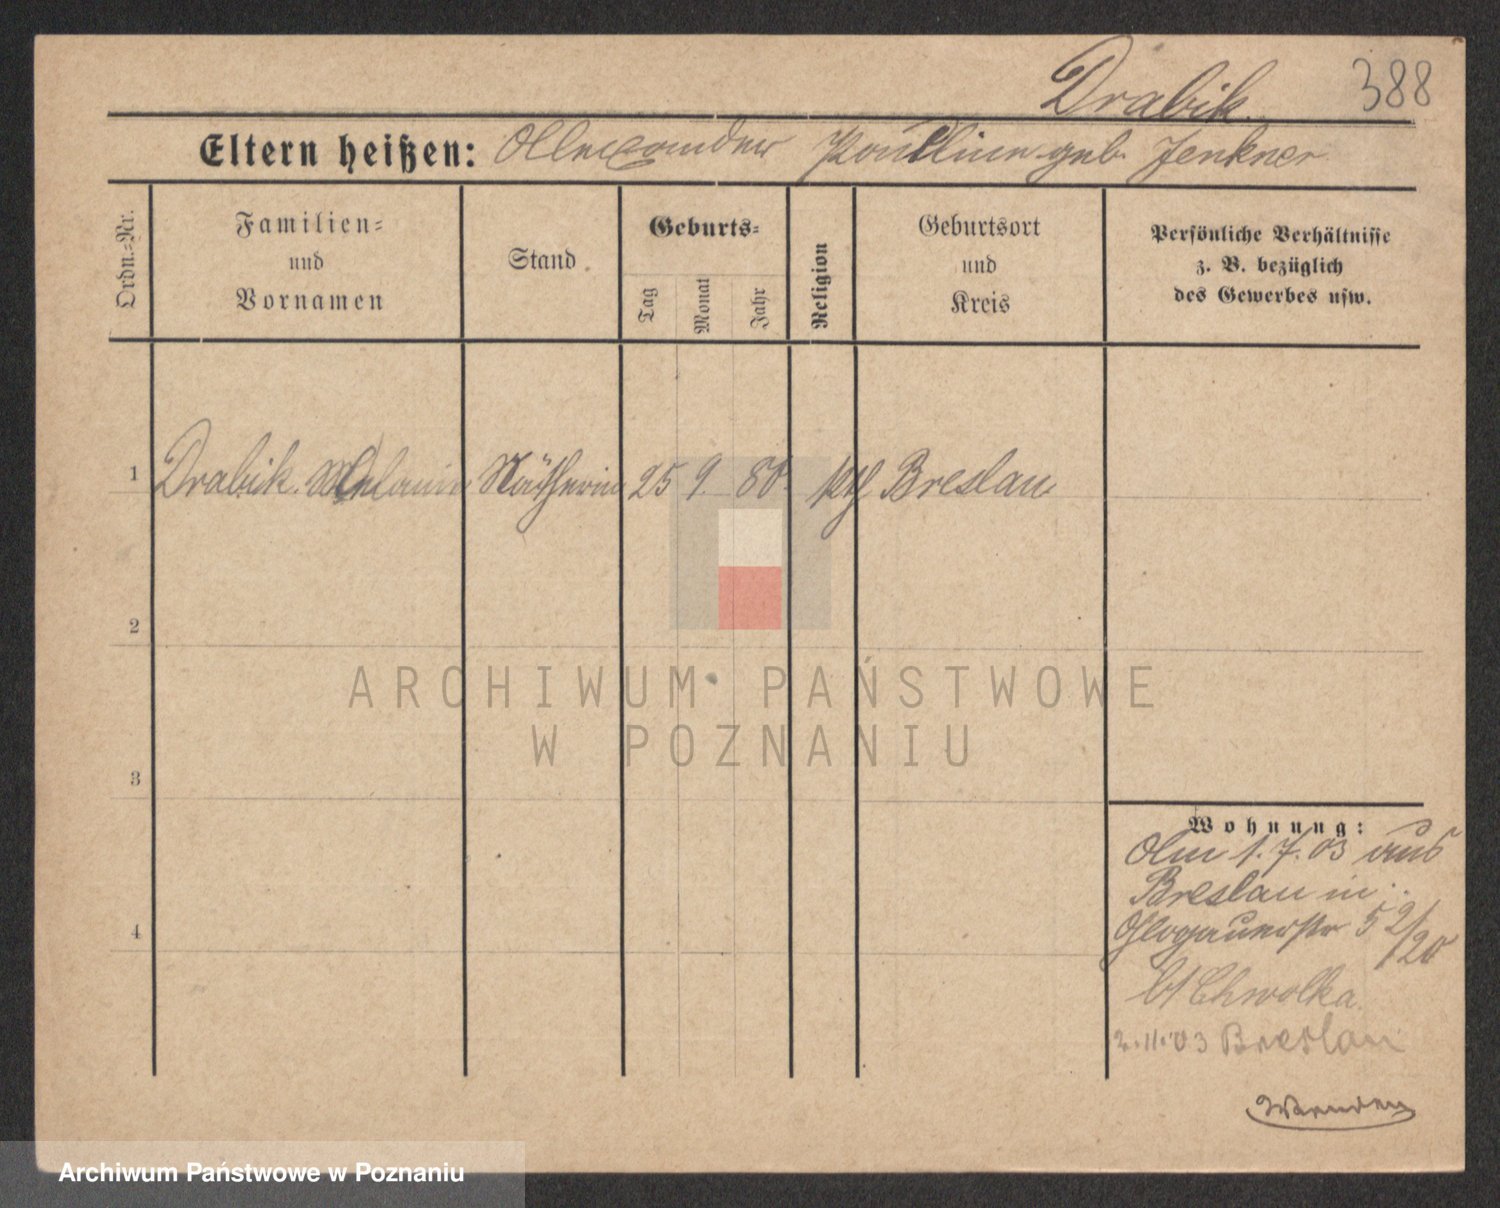 Drabik.
388
Eltern heißen: Allexander Paulline geb. Jenkner
Ordn.=Nr.
Familien=
und
Vornamen
Stand
Geburts=
Tag
Monat
Jahr
Religion
Geburtsort
und
Kreis
Persönliche Verhältnisse
z. B. bezüglich
des Gewerbes usw.
1 Drabik. Melanie Nätherin 25 9. 80. kth Breslau
2
3
4
Wohnung:
Am 1.7.03 aus
Breslau in
Glogauerstr 52/20
b/ Chwolka.
2.11.03 Breslau
ARCHIWUM PAŃSTWOWE
W POZNANIU
Archiwum Państwowe w Poznaniu